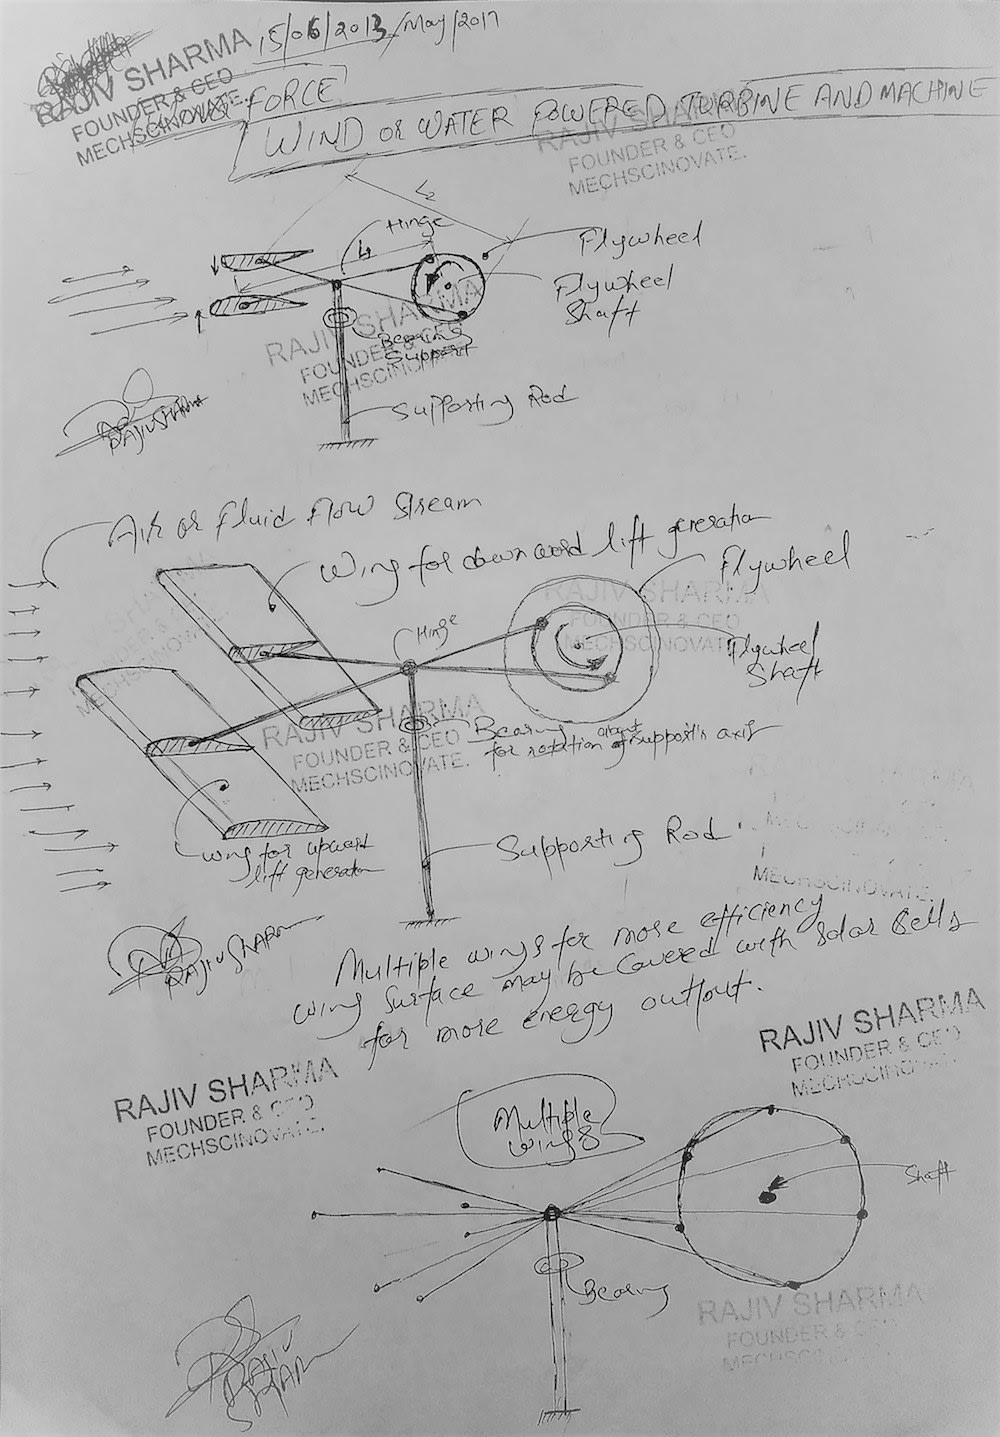 15/06/2013/May/2017
RAJIV SHARMA
FOUNDER & CEO
MECHSCINOVATE.
FORCE
WIND or WATER POWERED TURBINE AND MACHINE
RAJIV SHARMA
FOUNDER & CEO
MECHSCINOVATE.
L2
Hinge
L1
Flywheel
Flywheel
Shaft
RAJIV SHARMA
FOUNDER & CEO
MECHSCINOVATE.
Bearing
Support
Supporting Rod
RAJIV SHARMA
Air or Fluid Flow Stream
Wing for downward lift generation
Flywheel
Hinge
Flywheel
Shaft
RAJIV SHARMA
FOUNDER & CEO
MECHSCINOVATE.
RAJIV SHARMA
FOUNDER & CEO
MECHSCINOVATE.
Bearing
for rotation about support's axis
wing for upward
lift generation
Supporting Rod
MECHSCINOVATE.
RAJIV SHARMA
Multiple wings for more efficiency
wing surface may be covered with solar cells
for more energy output.
RAJIV SHARMA
FOUNDER & CEO
MECHSCINOVATE.
RAJIV SHARMA
FOUNDER & CEO
MECHSCINOVATE.
Multiple
wings
Shaft
Bearing
RAJIV SHARMA
FOUNDER & CEO
RAJIV
SHARMA